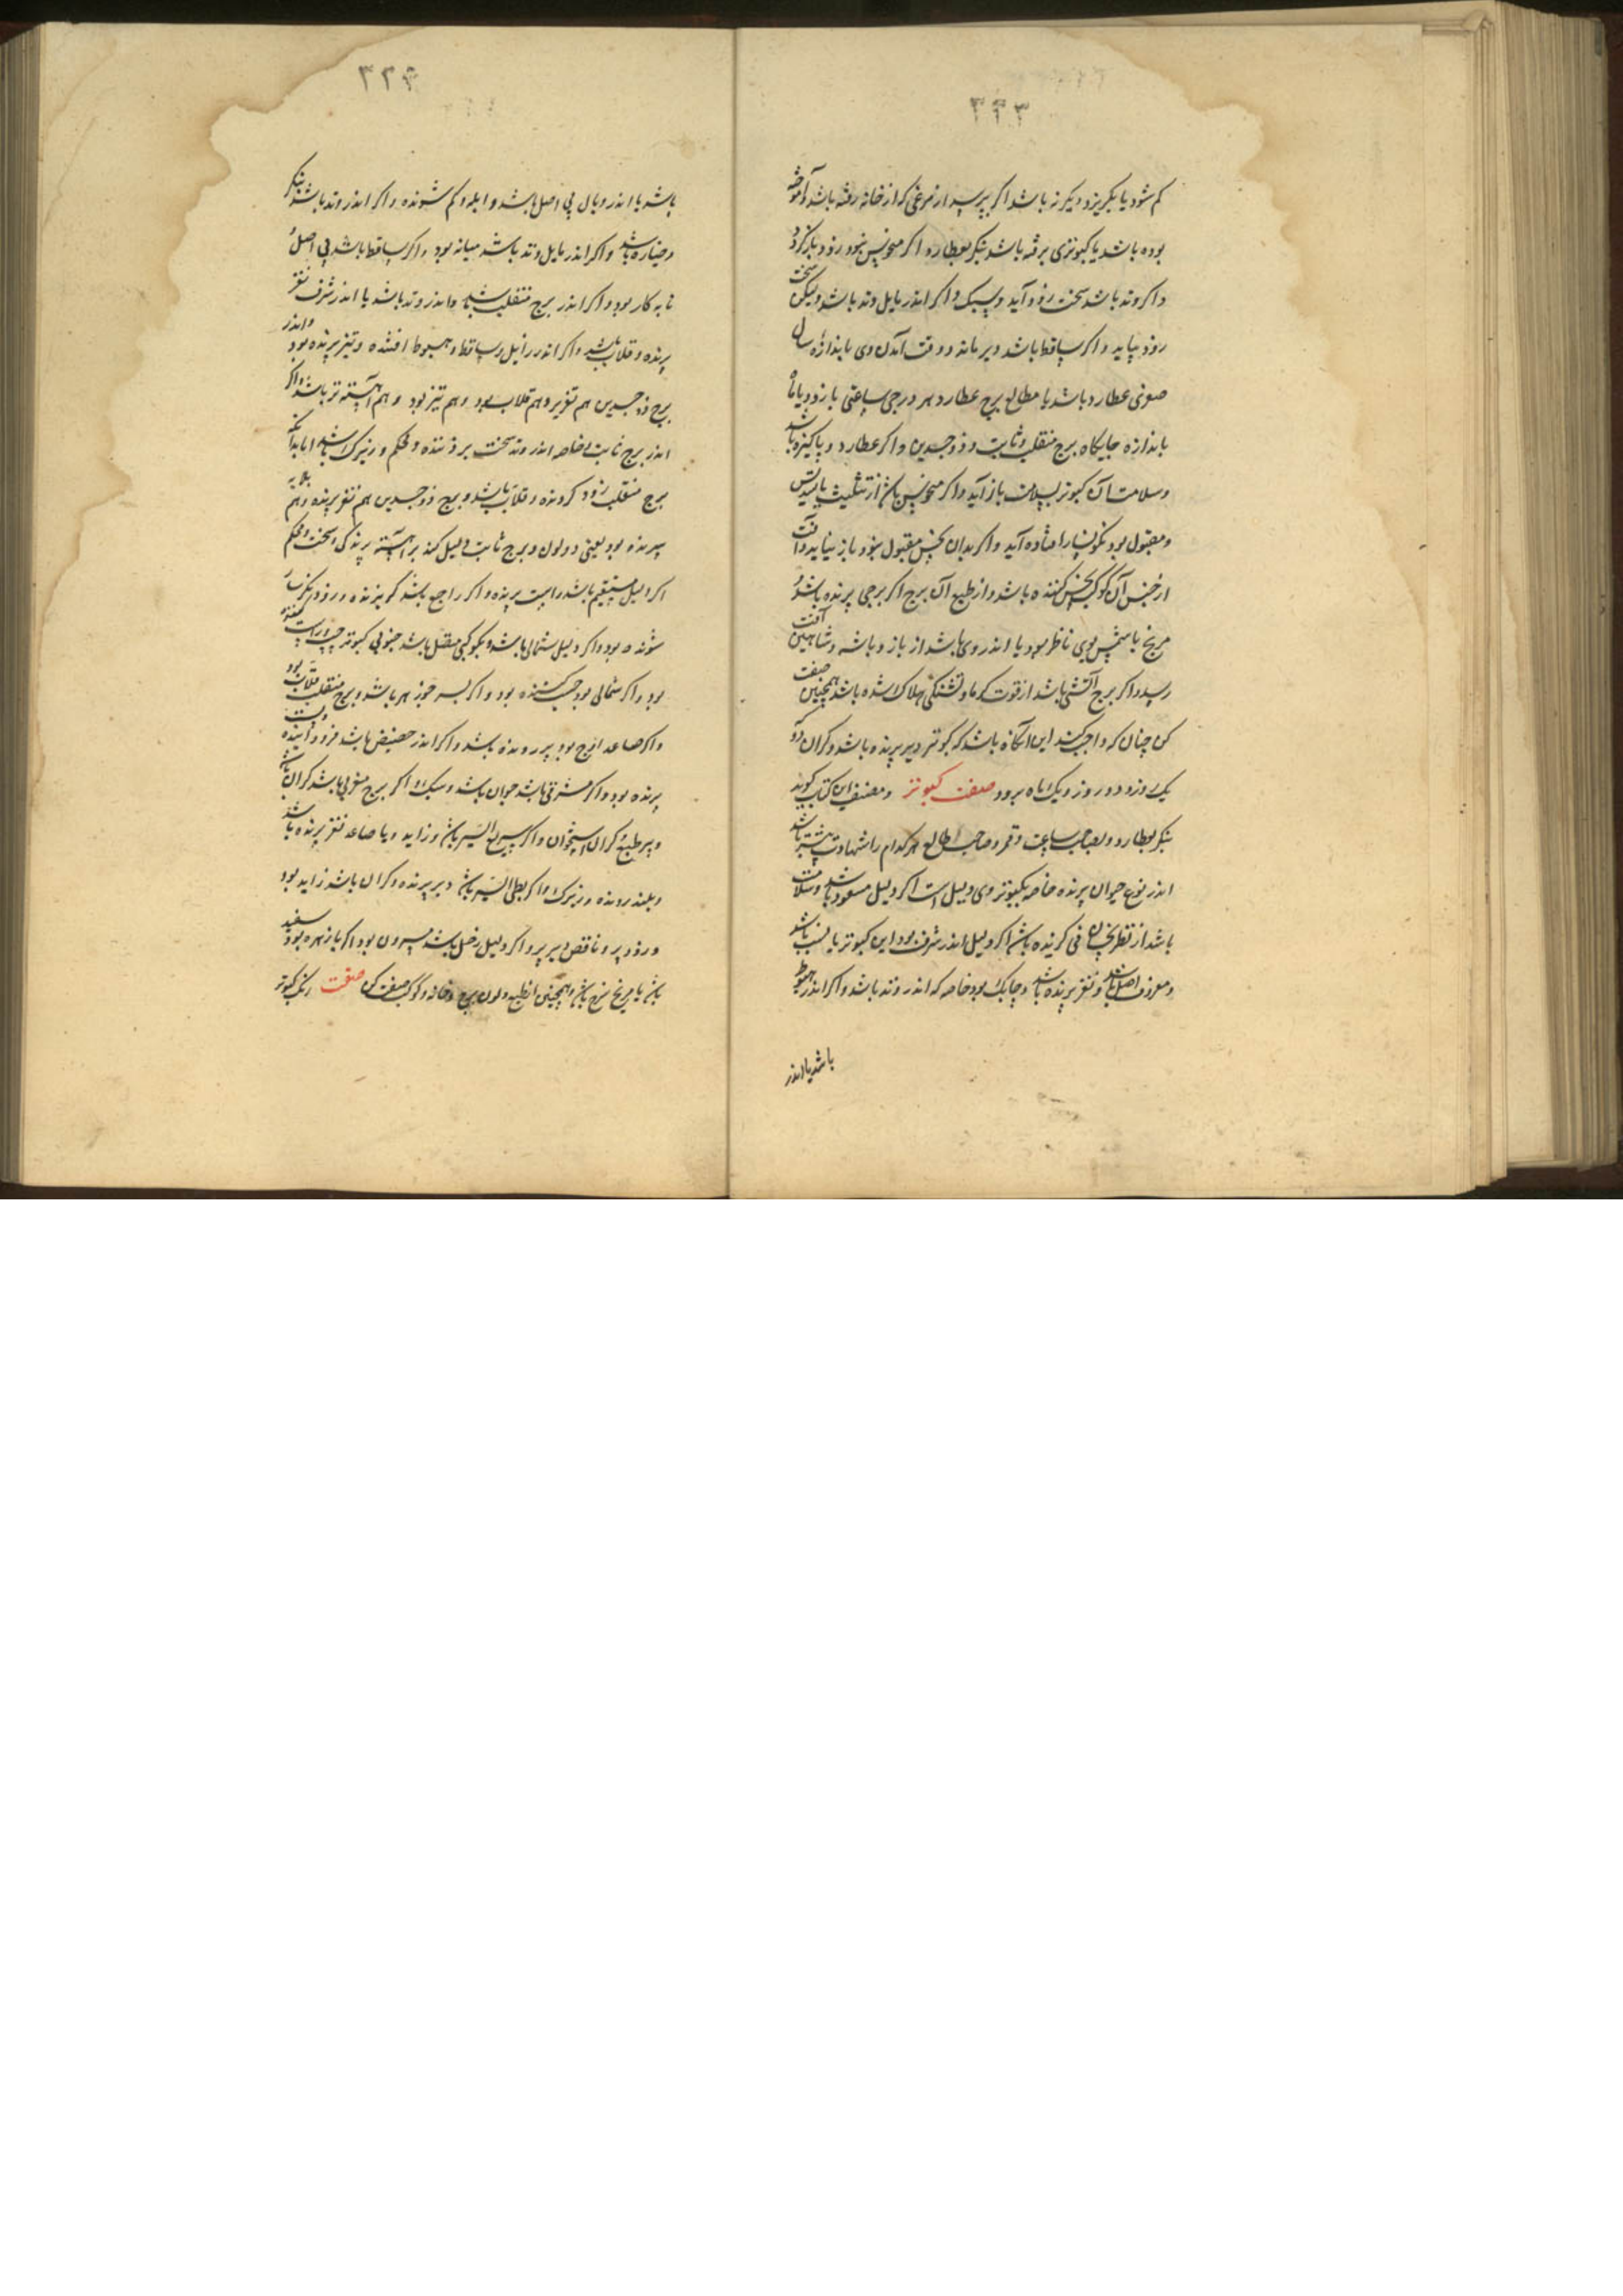 ۳۳۳
کم شود یا بگریزد دیگر نه باشد اگر پرسید از مرغی که از خانه رفته باشد آموخته
بوده باشد یا کبوتری برفته باشد بنگر بعطارد اگر منحوس نبود زود باز گردد
و اگر وتد باشد سخت زود آید و سبک و اگر اندر مایل وتد باشد ولیکن سخت
زود نیاید و اگر ساقط باشد دیر ماند و وقت آمدن وی باندازه سال
صغری عطارد باشد یا مطالع برج عطارد هر درجی ساعتی یا روز و یا ماه
باندازه جایگاه برج منقلب و ثابت و ذوجسدین و اگر عطارد و پاکیزه باشد
وسلامت آن کبوتر بسلامت باز آید و اگر منحوس باشد از تثلیث یا تسدیس
ومقبول بود نکونسار افتاده آید و اگر بدان نحس مقبول نبود باز نیاید و آفت
از جنس آن کوکب نحس کننده باشد و از طبع آن برج اگر برجی پرنده باشد و
مریخ یا شمس بوی ناظر بود یا اندر وی باشد از باز و باشه و شاهین آفت
رسد و اگر برج آتشی باشد از قوت گرما و تشنگی هلاک شده باشد همچنین صفت
کن چنان که واجب کند این آنگاه باشد که کبوتر دیر پرنده باشد و گران رو
یک روز و دو روز و یک ماه برود صفت کبوتر ومصنف این کتاب گوید
بنگر بعطارد و بصاحب ساعت و قمر و صاحب طالع هر کدام را شهادت بیشتر باشد
اندر نوع حیوان پرنده خاصه بکبوتر وی دلیل است اگر دلیل مسعود باشد وسلامت
باشد از نظر نحسان فی گرینده باشد اگر دلیل اندر شرف بود این کبوتر با نسب باشد
ومعروف اصل باشد و نغز پرنده باشد و چابک بود خاصه که اندر وتد باشد و اگر اندر هبوط
باشد یا اندر
۳۳۴
باشد یا اندر وبال بی اصل باشد و ابله و کم شونده و اگر اندر وتد باشد بنگر
و اگر اندر مایل وتد باشد میانه بود و اگر ساقط باشد بی اصل و
نا به کار بود و اگر اندر برج منقلب باشد و اندر وتد باشد یا اندر شرف نغز
پرنده و قلاب باشد و اگر اندر زایل و ساقط و هبوط افتنده و تیز پرنده بود و اندر
برج ذوجسدین هم نغز پر و هم قلاب بود و هم تیز بود و هم آهسته تر باشد و اگر
اندر برج ثابت خاصه اندر وتد سخت پر و تنده و محکم و زیرک باشد اما بدانکه
برج منقلب زود گردنده و قلاب باشد و برج ذوجسدین هم نغز پرنده و هم
پرنده بود یعنی دو لون و برج ثابت دلیل کند بر آهسته پرندگی و سخت و محکم
اگر دلیل مستقیم باشد راست پرنده و اگر راجع باشد گریزنده و زود
شونده بود و اگر دلیل شمالی باشد و بکوکبی متصل باشد جنوبی کبوتر
بود و اگر شمالی بود کننده بود و اگر بسه جوزهر باشد و برج منقلب قلاب بود
و اگر صاعد اوج بود پر رونده باشد و اگر اندر حضیض باشد فرود آینده
پرنده بود و اگر مشرقی باشد جوان باشد و سبک و اگر برج مغربی باشد گران باشد
و پیر طبع و گران استخوان و اگر سریع السیر باشد و زاید و یا صاعد نغز پرنده باشد
وبلند رونده و زیرک و اگر بطی السیر باشد دیر پرنده و گران باشد زاید بود
و زود پر و ناقص دیر پر و اگر دلیل زحل باشد سیه گون بود اگر با زهره بود سفید
باشد با مریخ سرخ باشد و همچنین از طبع و لون برج و خانه و کوکب صفت کن صفت رنگ کبوتر